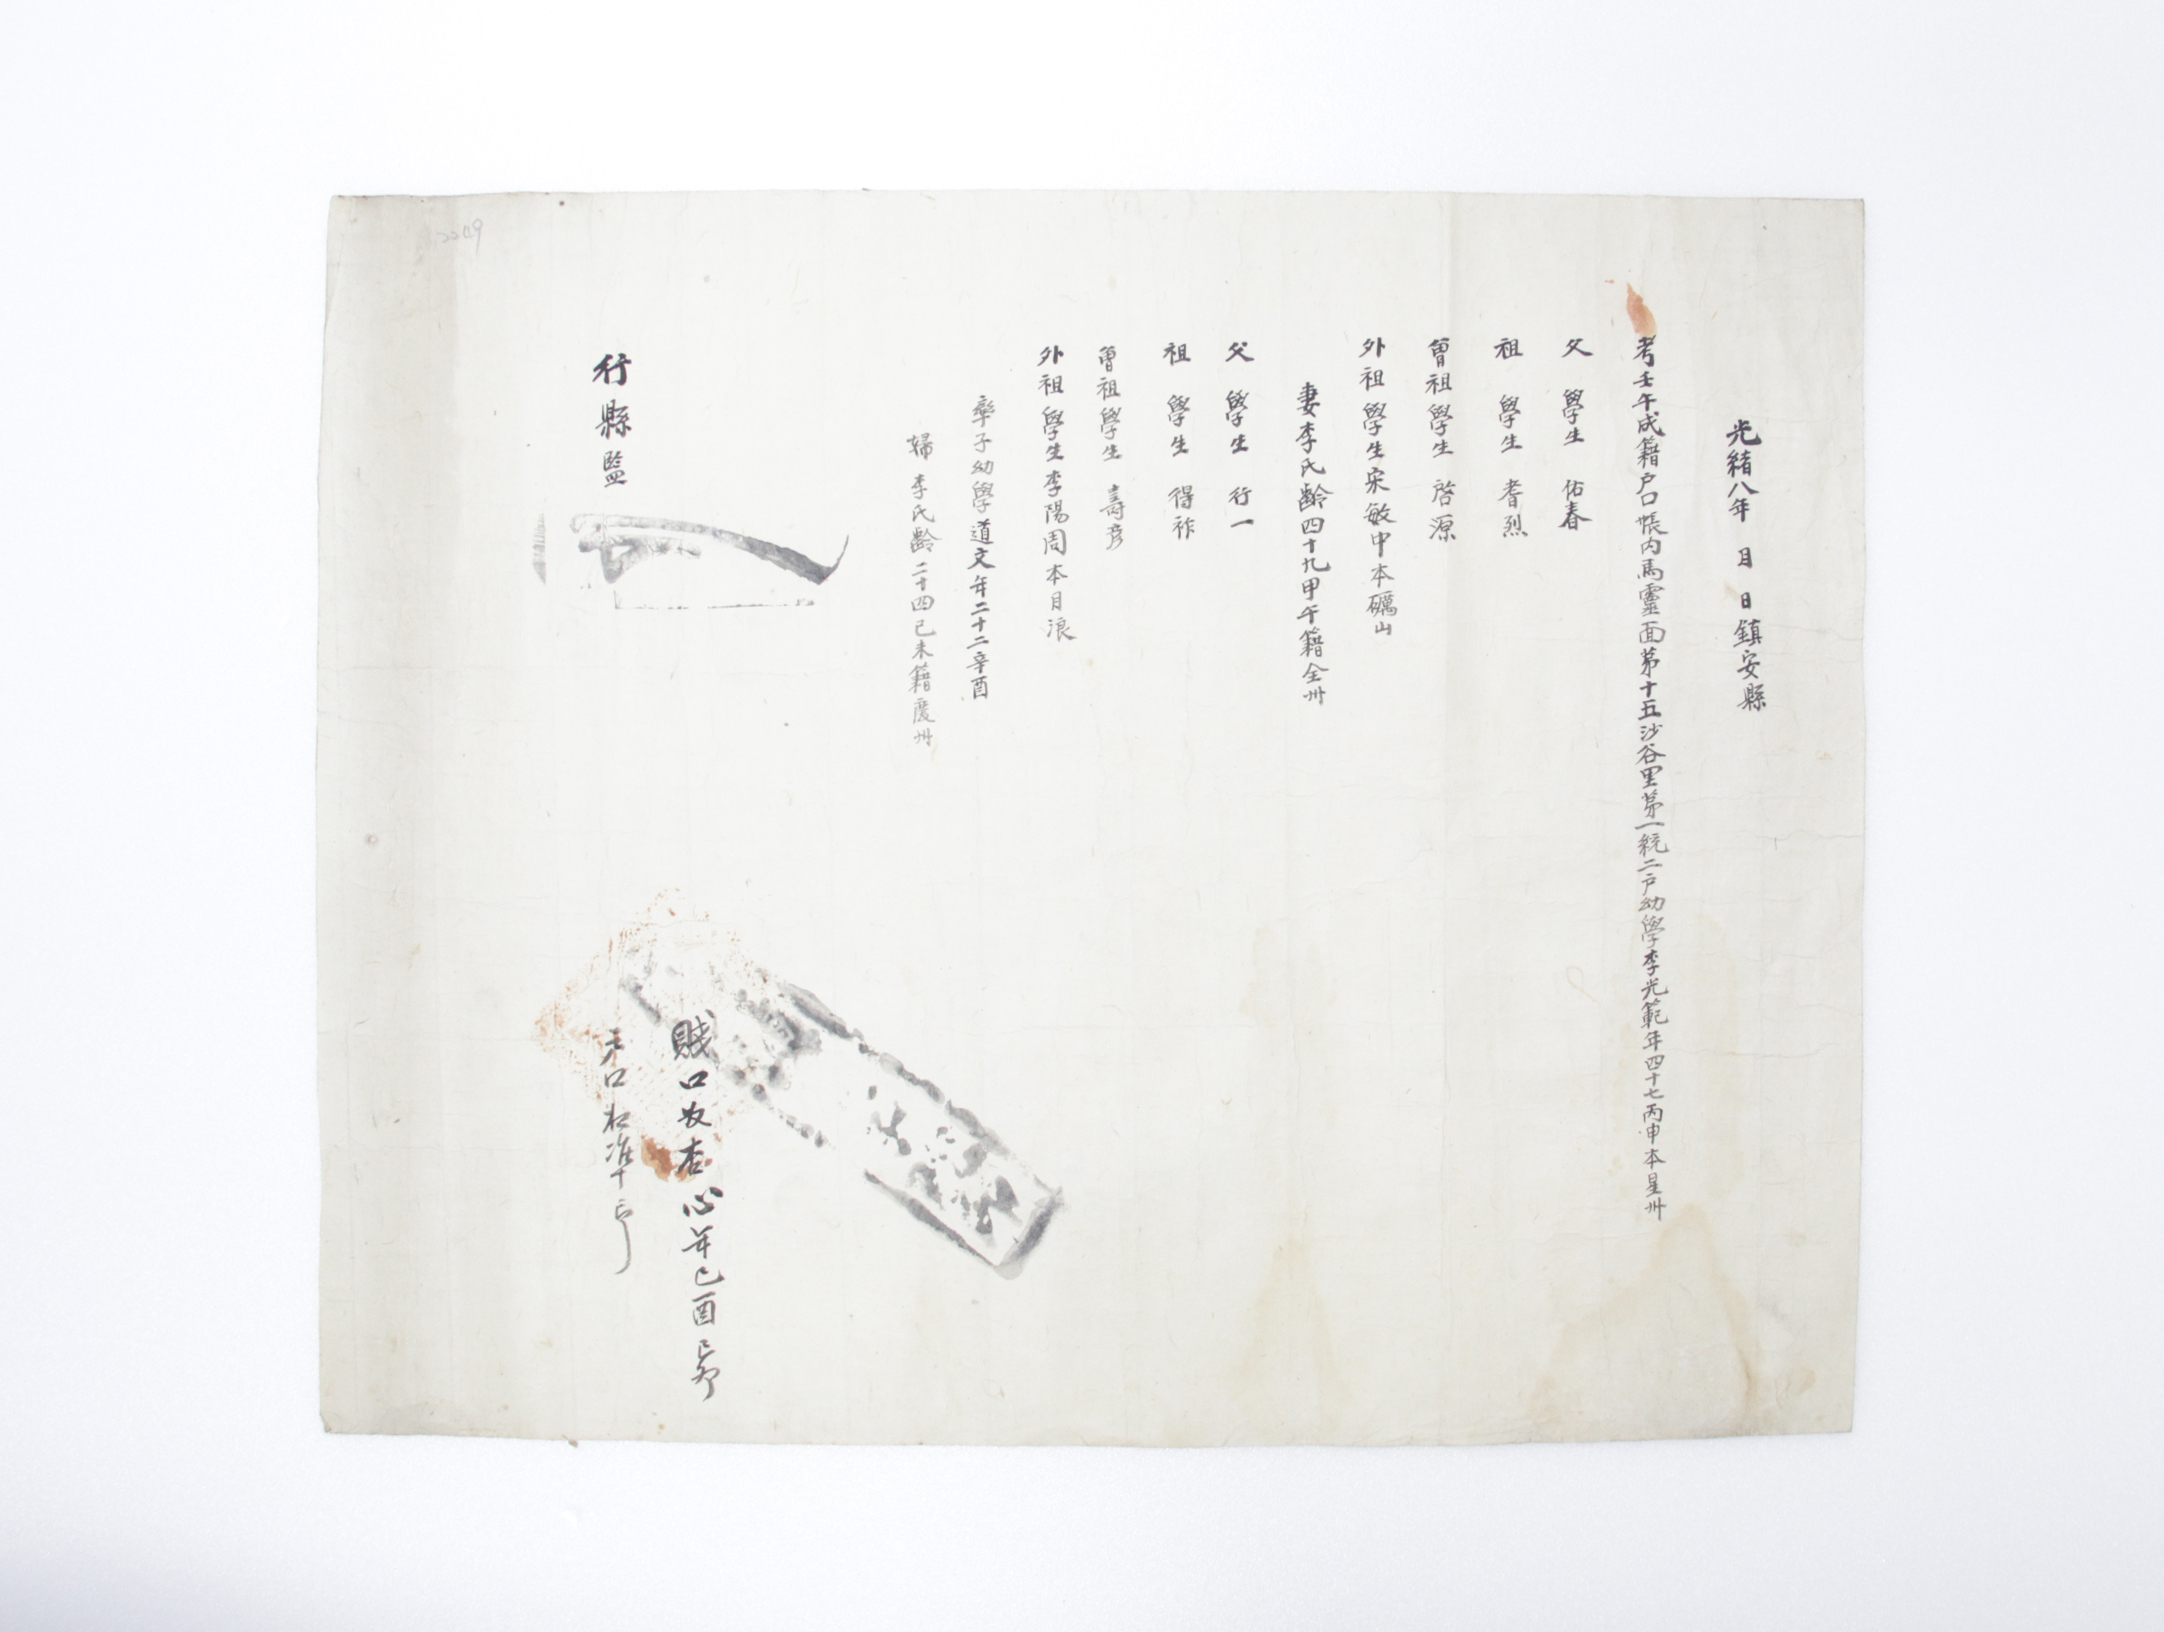 光緖八年 月 日鎭安縣
考壬午成籍户口帳内馬靈面第十五沙谷里第一統二户幼學李光範年四十七丙申本星州
父 學生 佑春
祖 學生 耆烈
曾祖學生 啓源
外祖學生宋敏中本礪山
妻李氏齡四十九甲午籍全州
父 學生 行一
祖 學生 得祚
曾祖學生 壽彦
外祖學生李陽周本目浪
率子幼學道文年二十二辛酉
婦 李氏齡二十四己未籍慶州
賤口奴杏心年己酉
行縣監
户口相準印
2249